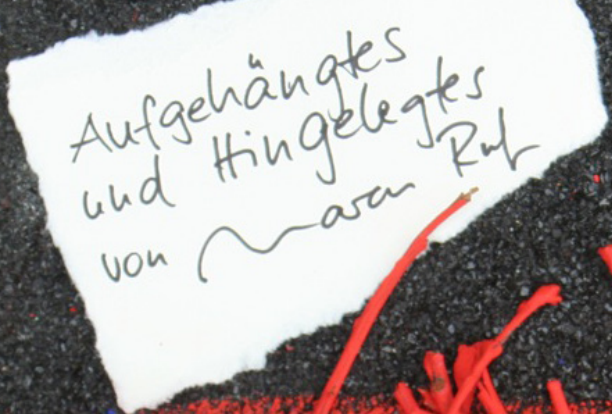 Aufgehängtes
und Hingelegtes
von Maren Ruf